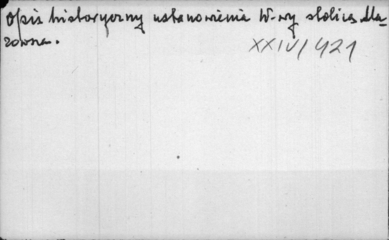 Opis historyczny ustanowienia W-wy stolicą Ma-
zowsza.
XXIV/421